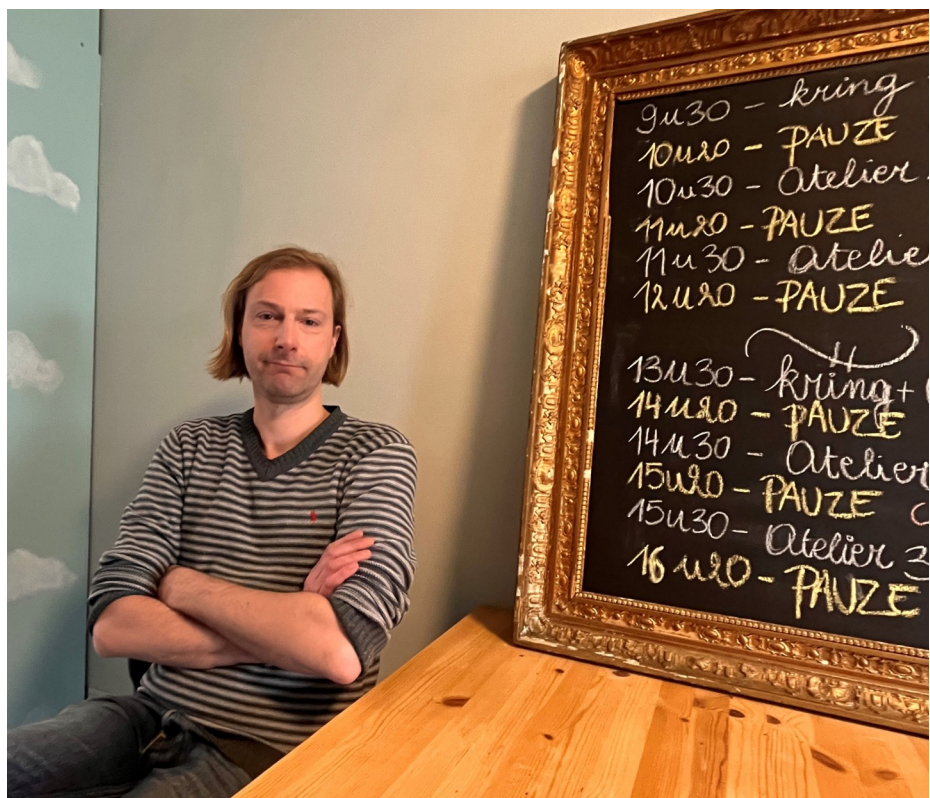 9u30 - kring
10u20 - PAUZE
10u30 - Atelier
11u20 - PAUZE
11u30 - atelie
12u20 - PAUZE
13u30 - kring +
14u20 - PAUZE
14u30 - Atelier
15u20 - PAUZE
15u30 - Atelier 3
16u20 - PAUZE